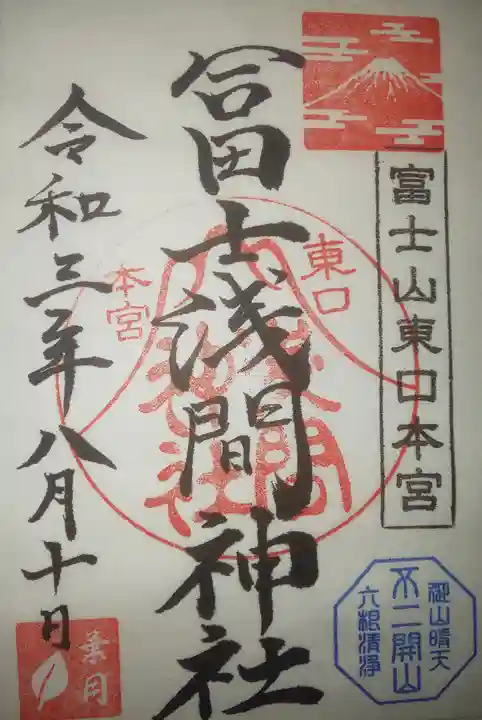 富士山東口本宮
冨士浅間神社
東口
本宮
令和三年八月十日
葉月
不二開山
六根清浄